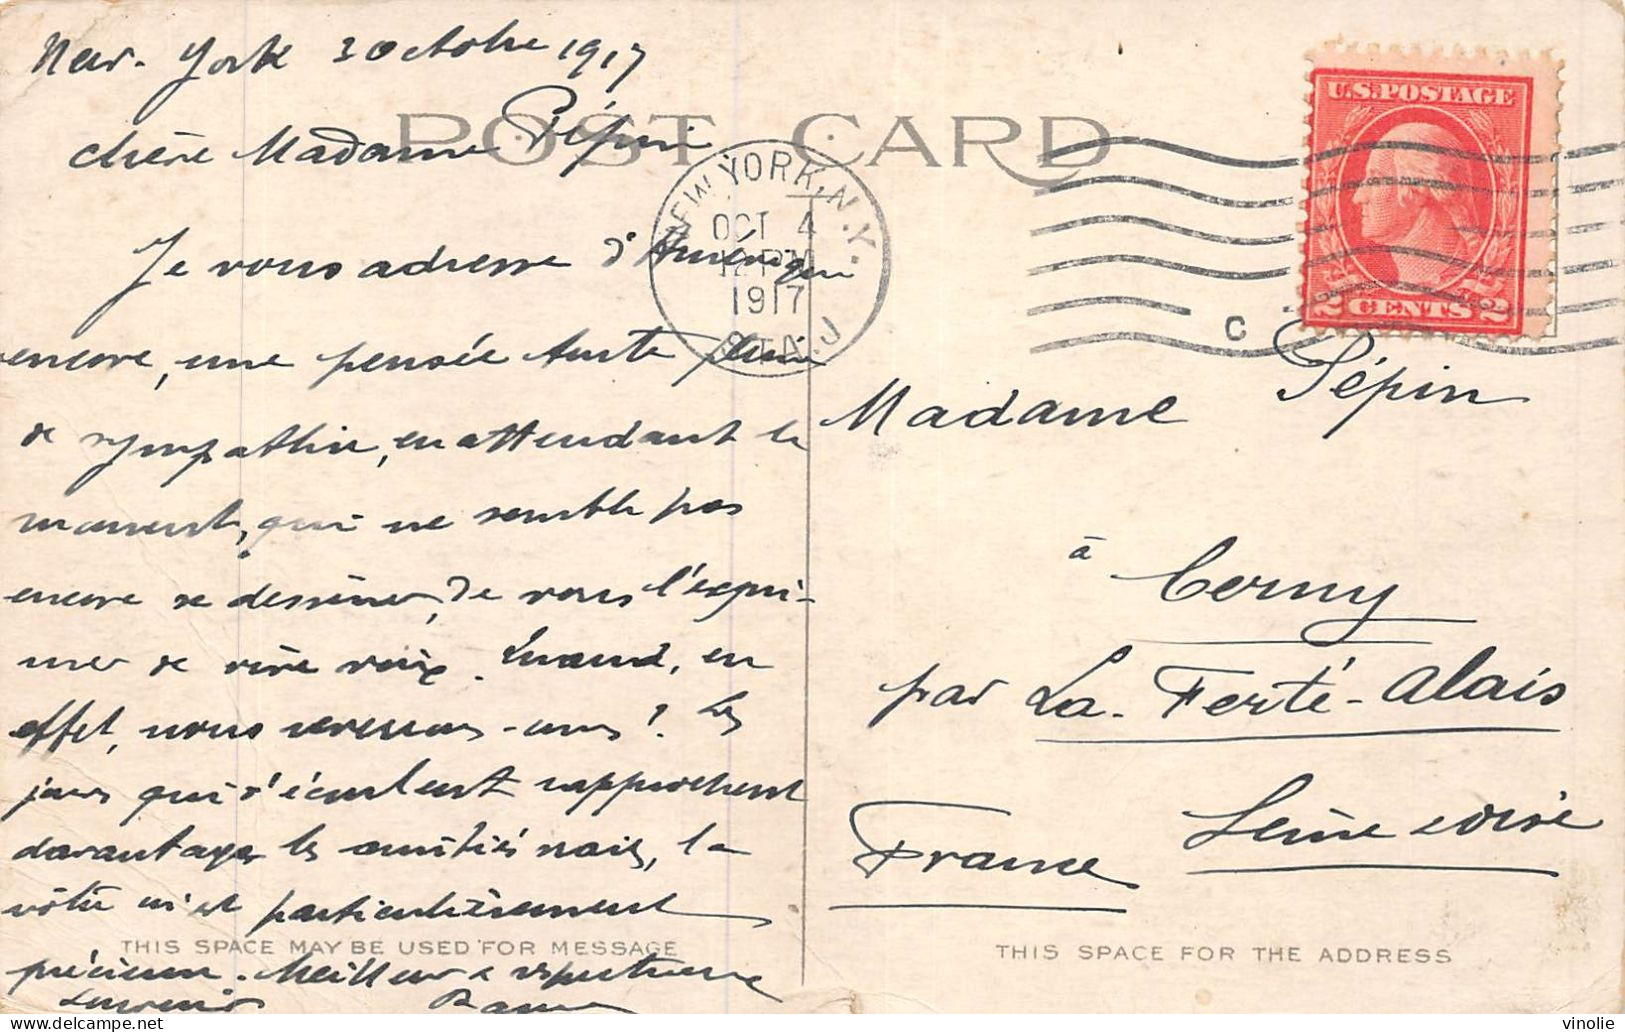 New-York 3 Octobre 1917
POST CARD
chère Madame Pépin
NEW YORK, N.Y.
OCT 4
12 PM
1917
STA. J
U.S. POSTAGE
2 CENTS 2
C
Je vous adresse d'Amérique
encore, une pensée toute pleine
de sympathie, en attendant le
moment, qui ne semble pas
encore se dessiner, de vous l'expri-
mer de vive voix. Quand, en
effet, nous reverrons-nous ? Les
jours qui s'écoulent rapprochent
davantage les amitiés vraies, la
vôtre m'est particulièrement
précieuse. Meilleur & respectueux
souvenir
Madame Pépin
à Cerny
par La-Ferté-Alais
Seine & Oise
France
THIS SPACE MAY BE USED FOR MESSAGE
THIS SPACE FOR THE ADDRESS
vinolie